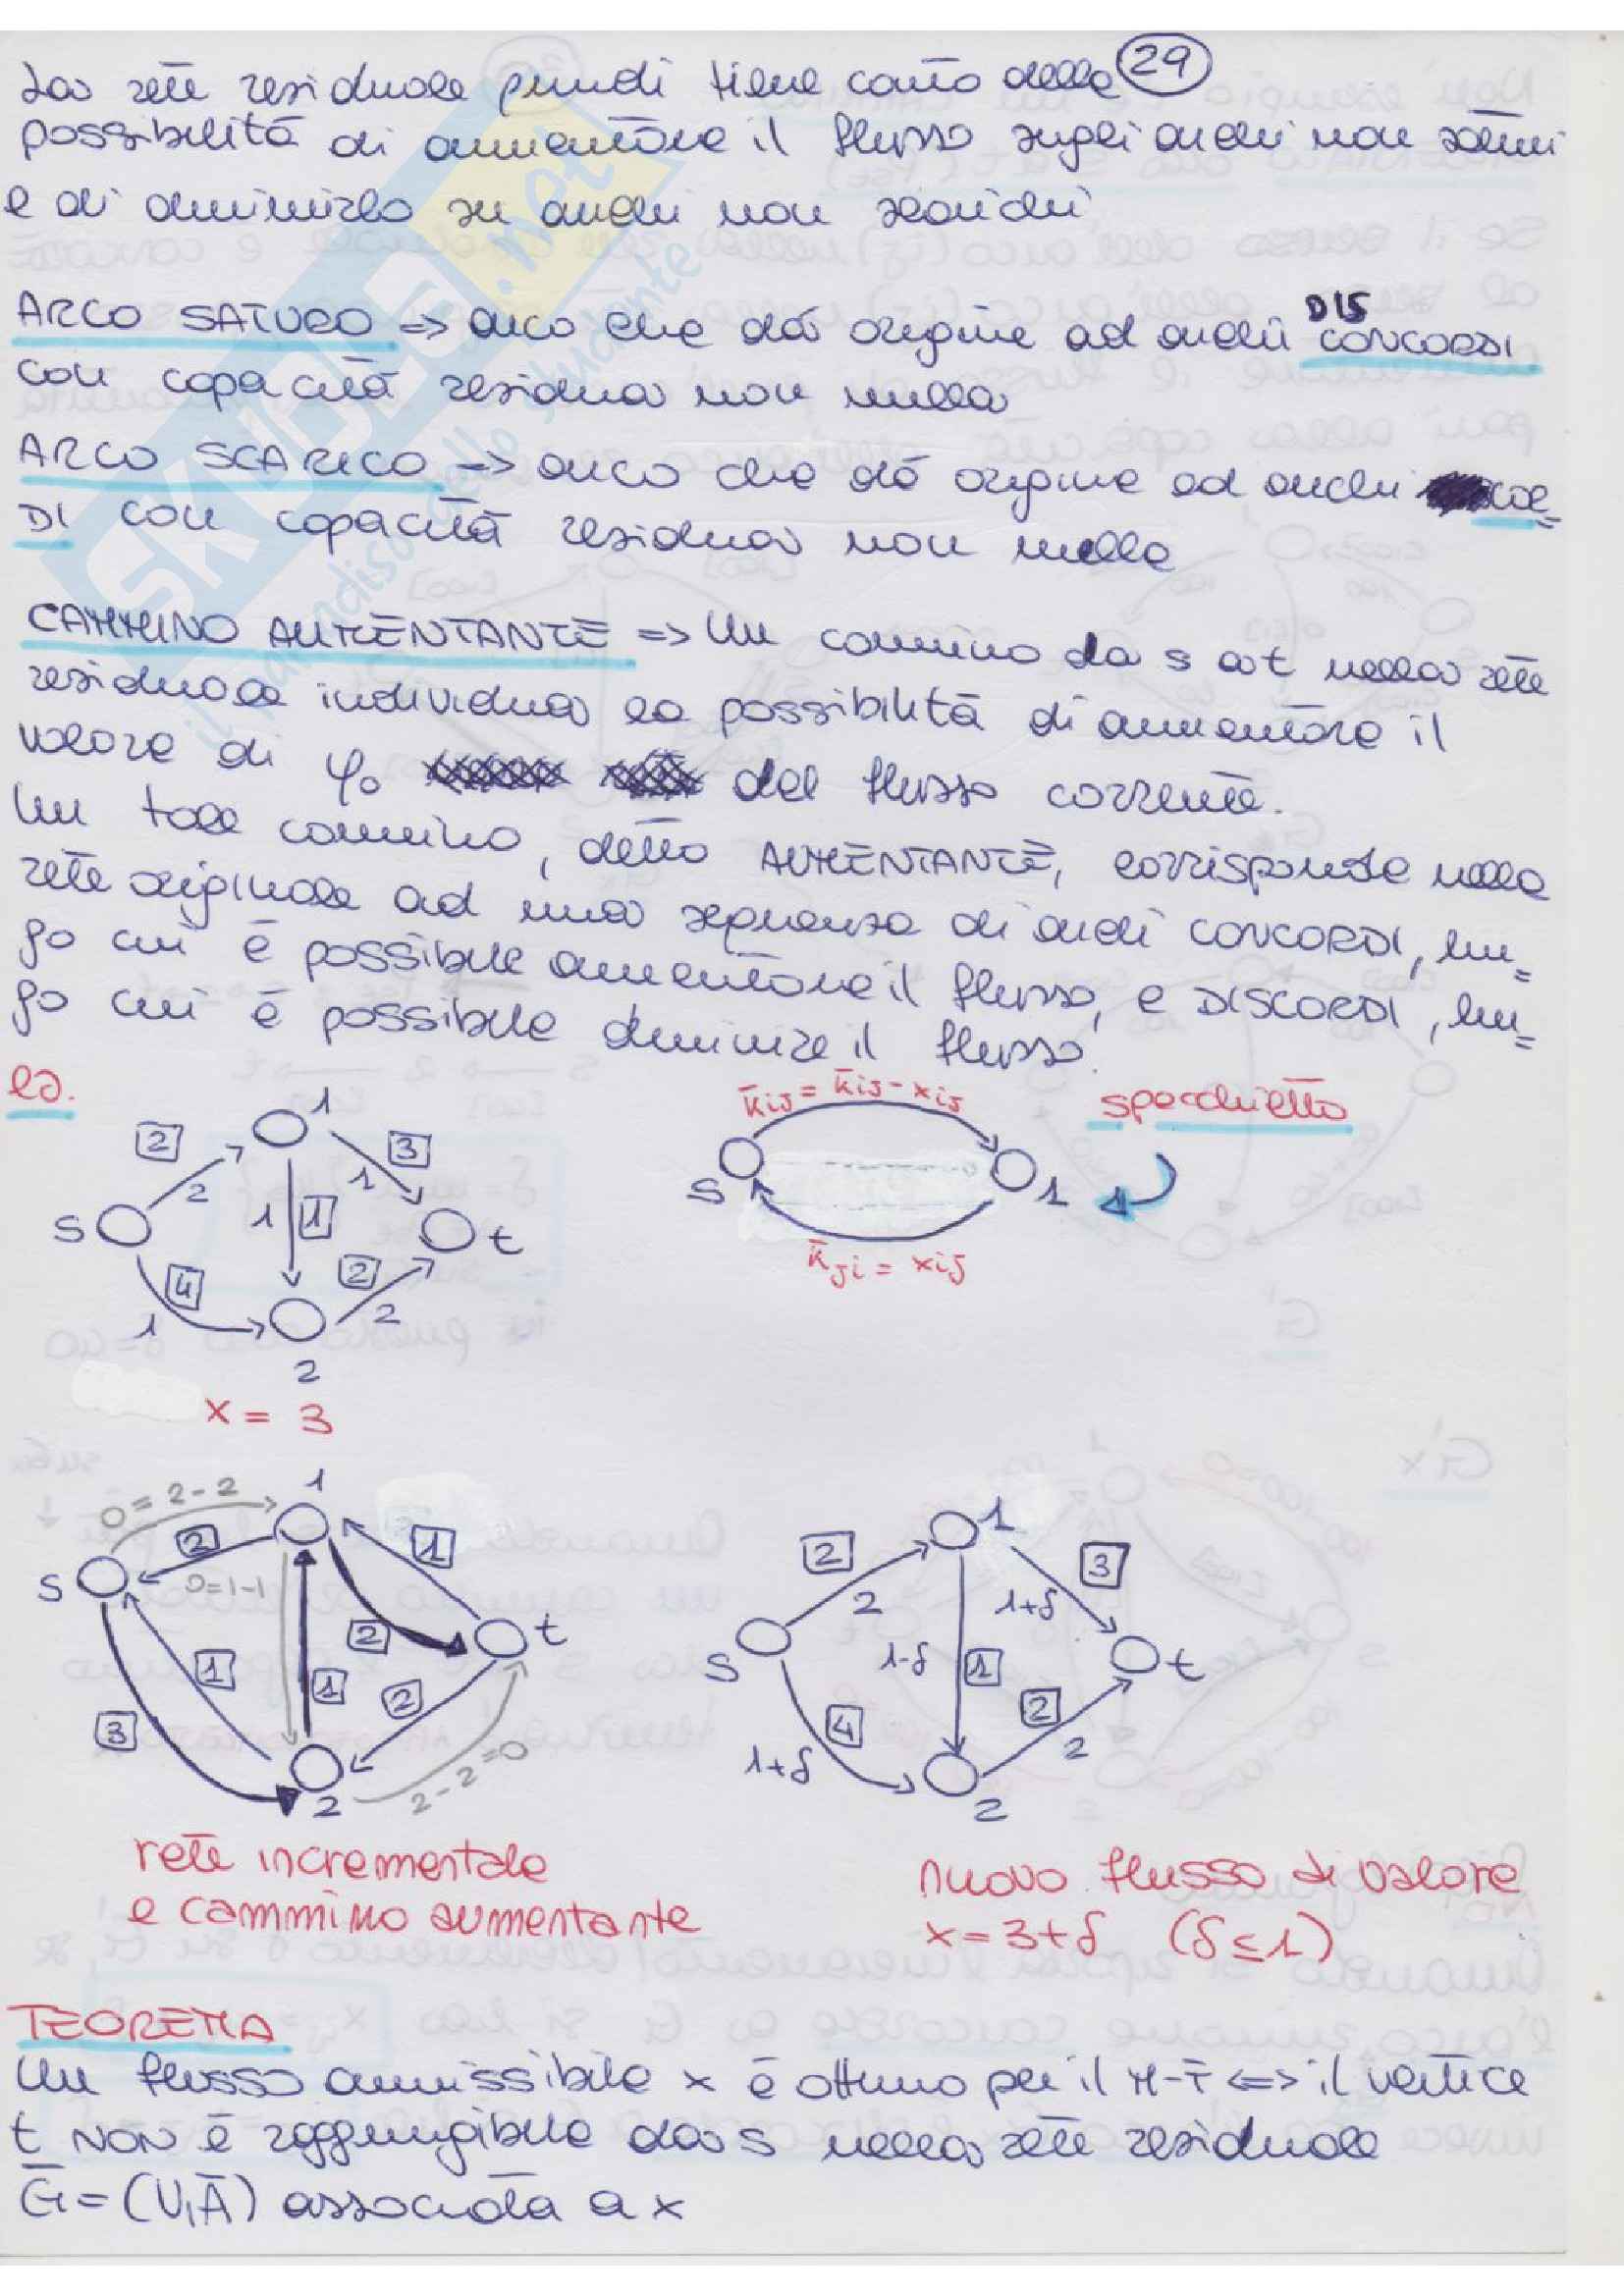 29
La rete residuale quindi tiene conto della
possibilità di aumentare il flusso sugli archi non saturi
e di diminuirlo su archi non scarichi
ARCO SATURO => arco che dà origine ad archi DISCONCORDI
con capacità residua non nulla
ARCO SCARICO => arco che dà origine ad archi
DI con capacità residua non nulla
CAMMINO AUMENTANTE => Un cammino da s a t nella rete
residuale individua la possibilità di aumentare il
valore di φ₀ del flusso corrente.
Un tale cammino, detto AUMENTANTE, corrisponde nella
rete originale ad una sequenza di archi CONCORDI, lun=
go cui è possibile aumentare il flusso, e DISCORDI, lun=
go cui è possibile diminuire il flusso.
es.
1
2
2
3
1
s
1
1
t
4
1
2
2
2
x = 3
k̄ij = k̄ij - xij
specchietto
s
1
k̄ji = xij
1
0=2-2
2
1
s
0=1-1
2
t
1
1
2
3
2
2-2=0
rete incrementale
e cammino aumentante
1
2
2
3
1+δ
s
1-δ
1
t
4
1+δ
2
2
2
nuovo flusso di valore
x=3+δ (δ≤1)
TEOREMA
Un flusso ammissibile x è ottimo per il M-F <=> il vertice
t NON è raggiungibile da s nella rete residuale
Ḡ=(V,Ā) associata a x
SKUOLA.net
il paradiso dello studente